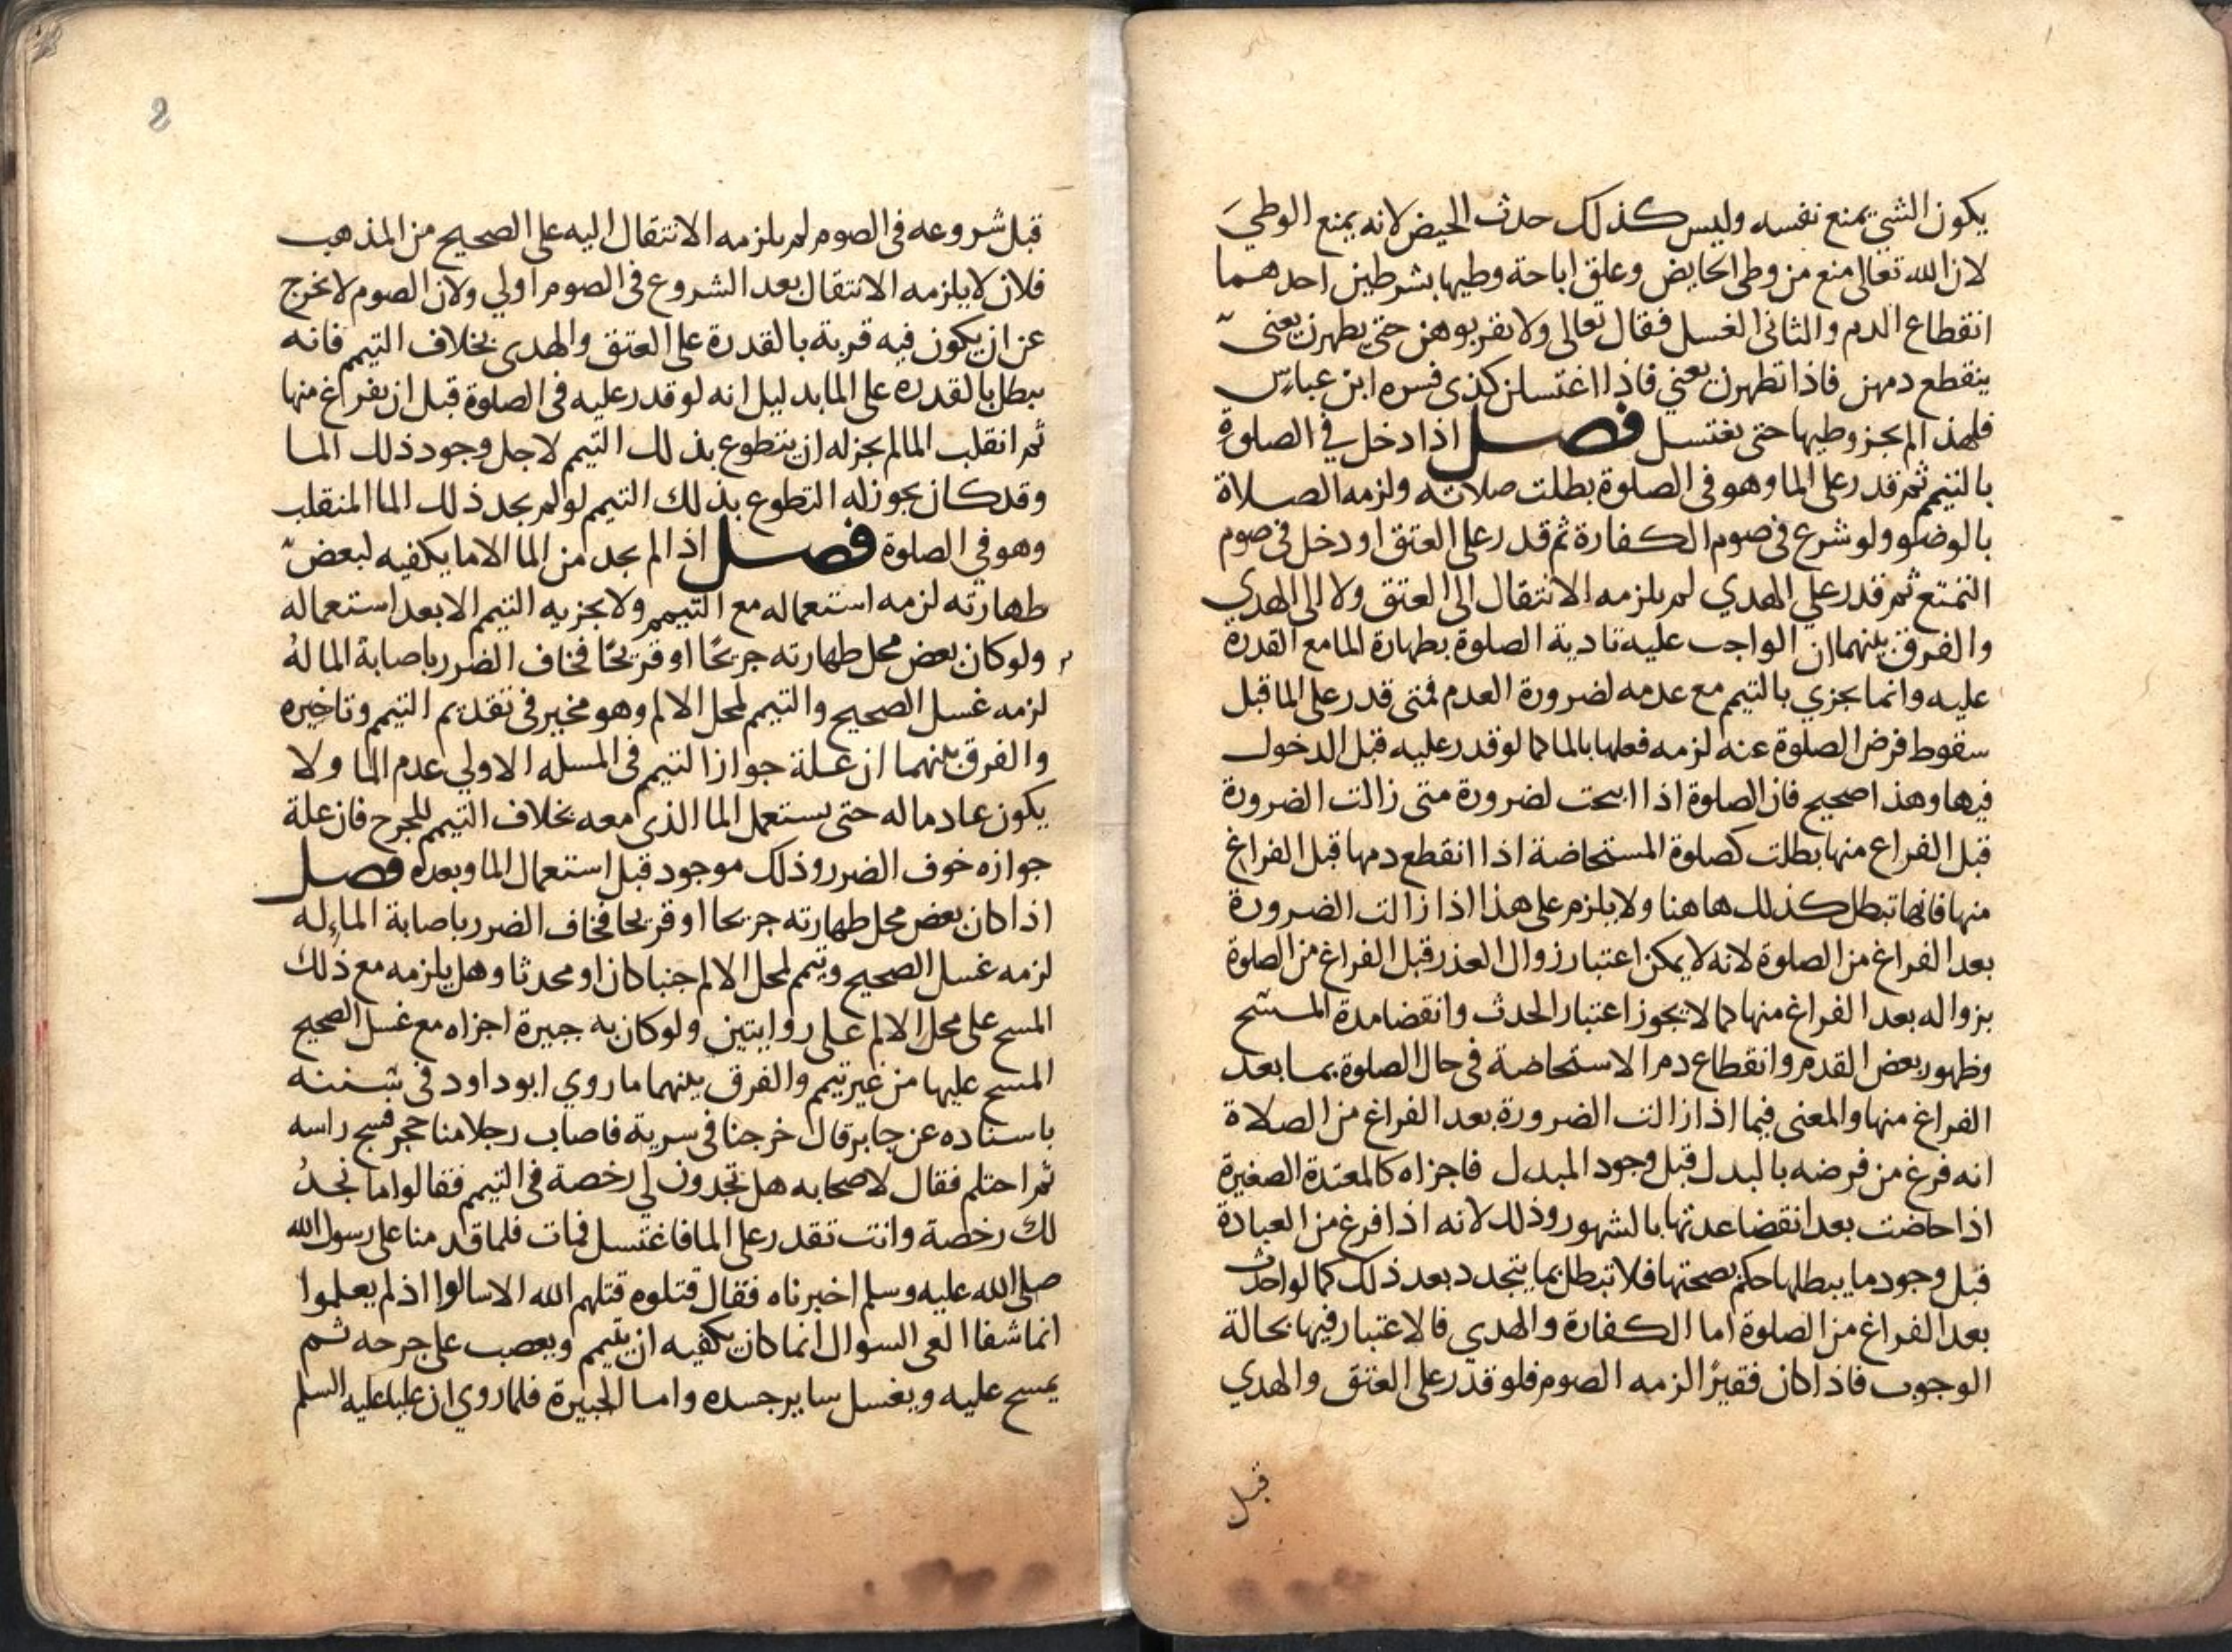 يكون الشي يمنع نفسه وليس كذلك حدث الحيض لانه يمنع الوطي
لان الله تعالى منع من وطى الحايض وعلق اباحة وطيها بشرطين احدهما
انقطاع الدم والثانى الغسل فقال تعالى ولا تقربوهن حتى يطهرن يعنى
ينقطع دمهن فاذا تطهرن يعني فاذا اغتسلن كذى فسره ابن عباس
فلهذا لم يجز وطيها حتى تغتسل فصل اذا دخل في الصلوة
بالتيمم ثم قدر على الما وهو فى الصلوة بطلت صلاته ولزمه الصلاة
بالوضوء ولو شرع فى صوم الكفارة ثم قدر على العتق او دخل فى صوم
التمتع ثم قدر على الهدي لم يلزمه الانتقال الى العتق ولا الى الهدي
والفرق بينهما ان الواجب عليه تادية الصلوة بطهارة الما مع القدرة
عليه وانما يجزي بالتيمم مع عدمه لضرورة العدم فمتى قدر على الما قبل
سقوط فرض الصلوة عنه لزمه فعلها بالما كما لو قدر عليه قبل الدخول
فيها وهذا صحيح فان الصلوة اذا ابيحت لضرورة متى زالت الضرورة
قبل الفراغ منها بطلت كصلوة المستحاضة اذا انقطع دمها قبل الفراغ
منها فانها تبطل كذلك هاهنا ولا يلزم على هذا اذا زالت الضرورة
بعد الفراغ من الصلوة لانه لا يمكن اعتبار زوال العذر قبل الفراغ من الصلوة
بزواله بعد الفراغ منها كما لا يجوز اعتبار الحدث وانقضا مدة المسح
وظهور بعض القدم وانقطاع دم الاستحاضة فى حال الصلوة بما بعد
الفراغ منها والمعنى فيما اذا زالت الضرورة بعد الفراغ من الصلاة
انه فرغ من فرضه بالبدل قبل وجود المبدل فاجزاه كالمعتدة الصغيرة
اذا حاضت بعد انقضا عدتها بالشهور وذلك لانه اذا فرغ من العبادة
قبل وجود ما يبطلها حكم بصحتها فلا تبطل بما يتجدد بعد ذلك كما لو احدث
بعد الفراغ من الصلوة اما الكفارة والهدي فالاعتبار فيها بحالة
الوجوب فاذا كان فقيرًا لزمه الصوم فلو قدر على العتق والهدي
قبل
8
قبل شروعه فى الصوم لم يلزمه الانتقال اليه على الصحيح من المذهب
فلان لا يلزمه الانتقال بعد الشروع فى الصوم اولي ولان الصوم لا يخرج
عن ان يكون فيه قربة بالقدرة على العتق والهدى بخلاف التيمم فانه
يبطل بالقدرة على الما بدليل انه لو قدر عليه فى الصلوة قبل ان يفرغ منها
ثم انقلب الما لم يجز له ان يتطوع بذلك التيمم لاجل وجود ذلك الما
وقد كان يجوز له التطوع بذلك التيمم لو لم يجد ذلك الما المنقلب
وهو في الصلوة فصل اذا لم يجد من الما الا ما يكفيه لبعض
طهارته لزمه استعماله مع التيمم ولا يجزيه التيمم الا بعد استعماله
ولو كان بعض محل طهارته جريحًا او قريحًا فخاف الضرر باصابة الما له
لزمه غسل الصحيح والتيمم لمحل الالم وهو مخير فى تقديم التيمم وتاخيره
والفرق بينهما ان علة جواز التيمم فى المسله الاولي عدم الما ولا
يكون عادما له حتى يستعمل الما الذى معه بخلاف التيمم للجرح فان علة
جوازه خوف الضرر وذلك موجود قبل استعمال الما وبعده فصل
اذا كان بعض محل طهارته جريحا او قريحا فخاف الضرر باصابة الماء له
لزمه غسل الصحيح ويتيمم لمحل الالم جنبا كان او محدثا وهل يلزمه مع ذلك
المسح على محل الالم على روايتين ولو كان به جبيرة اجزاه مع غسل الصحيح
المسح عليها من غير تيمم والفرق بينهما ما روي ابو داود فى سننه
باسناده عن جابر قال خرجنا فى سرية فاصاب رجلا منا حجر فشج راسه
ثم احتلم فقال لاصحابه هل تجدون لي رخصة فى التيمم فقالوا ما نجد
لك رخصة وانت تقدر على الما فاغتسل فمات فلما قدمنا على رسول الله
صلى الله عليه وسلم اخبرناه فقال قتلوه قتلهم الله الا سالوا اذ لم يعلموا
انما شفا العى السوال انما كان يكفيه ان يتيمم ويعصب على جرحه ثم
يمسح عليه ويغسل ساير جسده واما الجبيرة فلما روي ان عليا عليه السلم